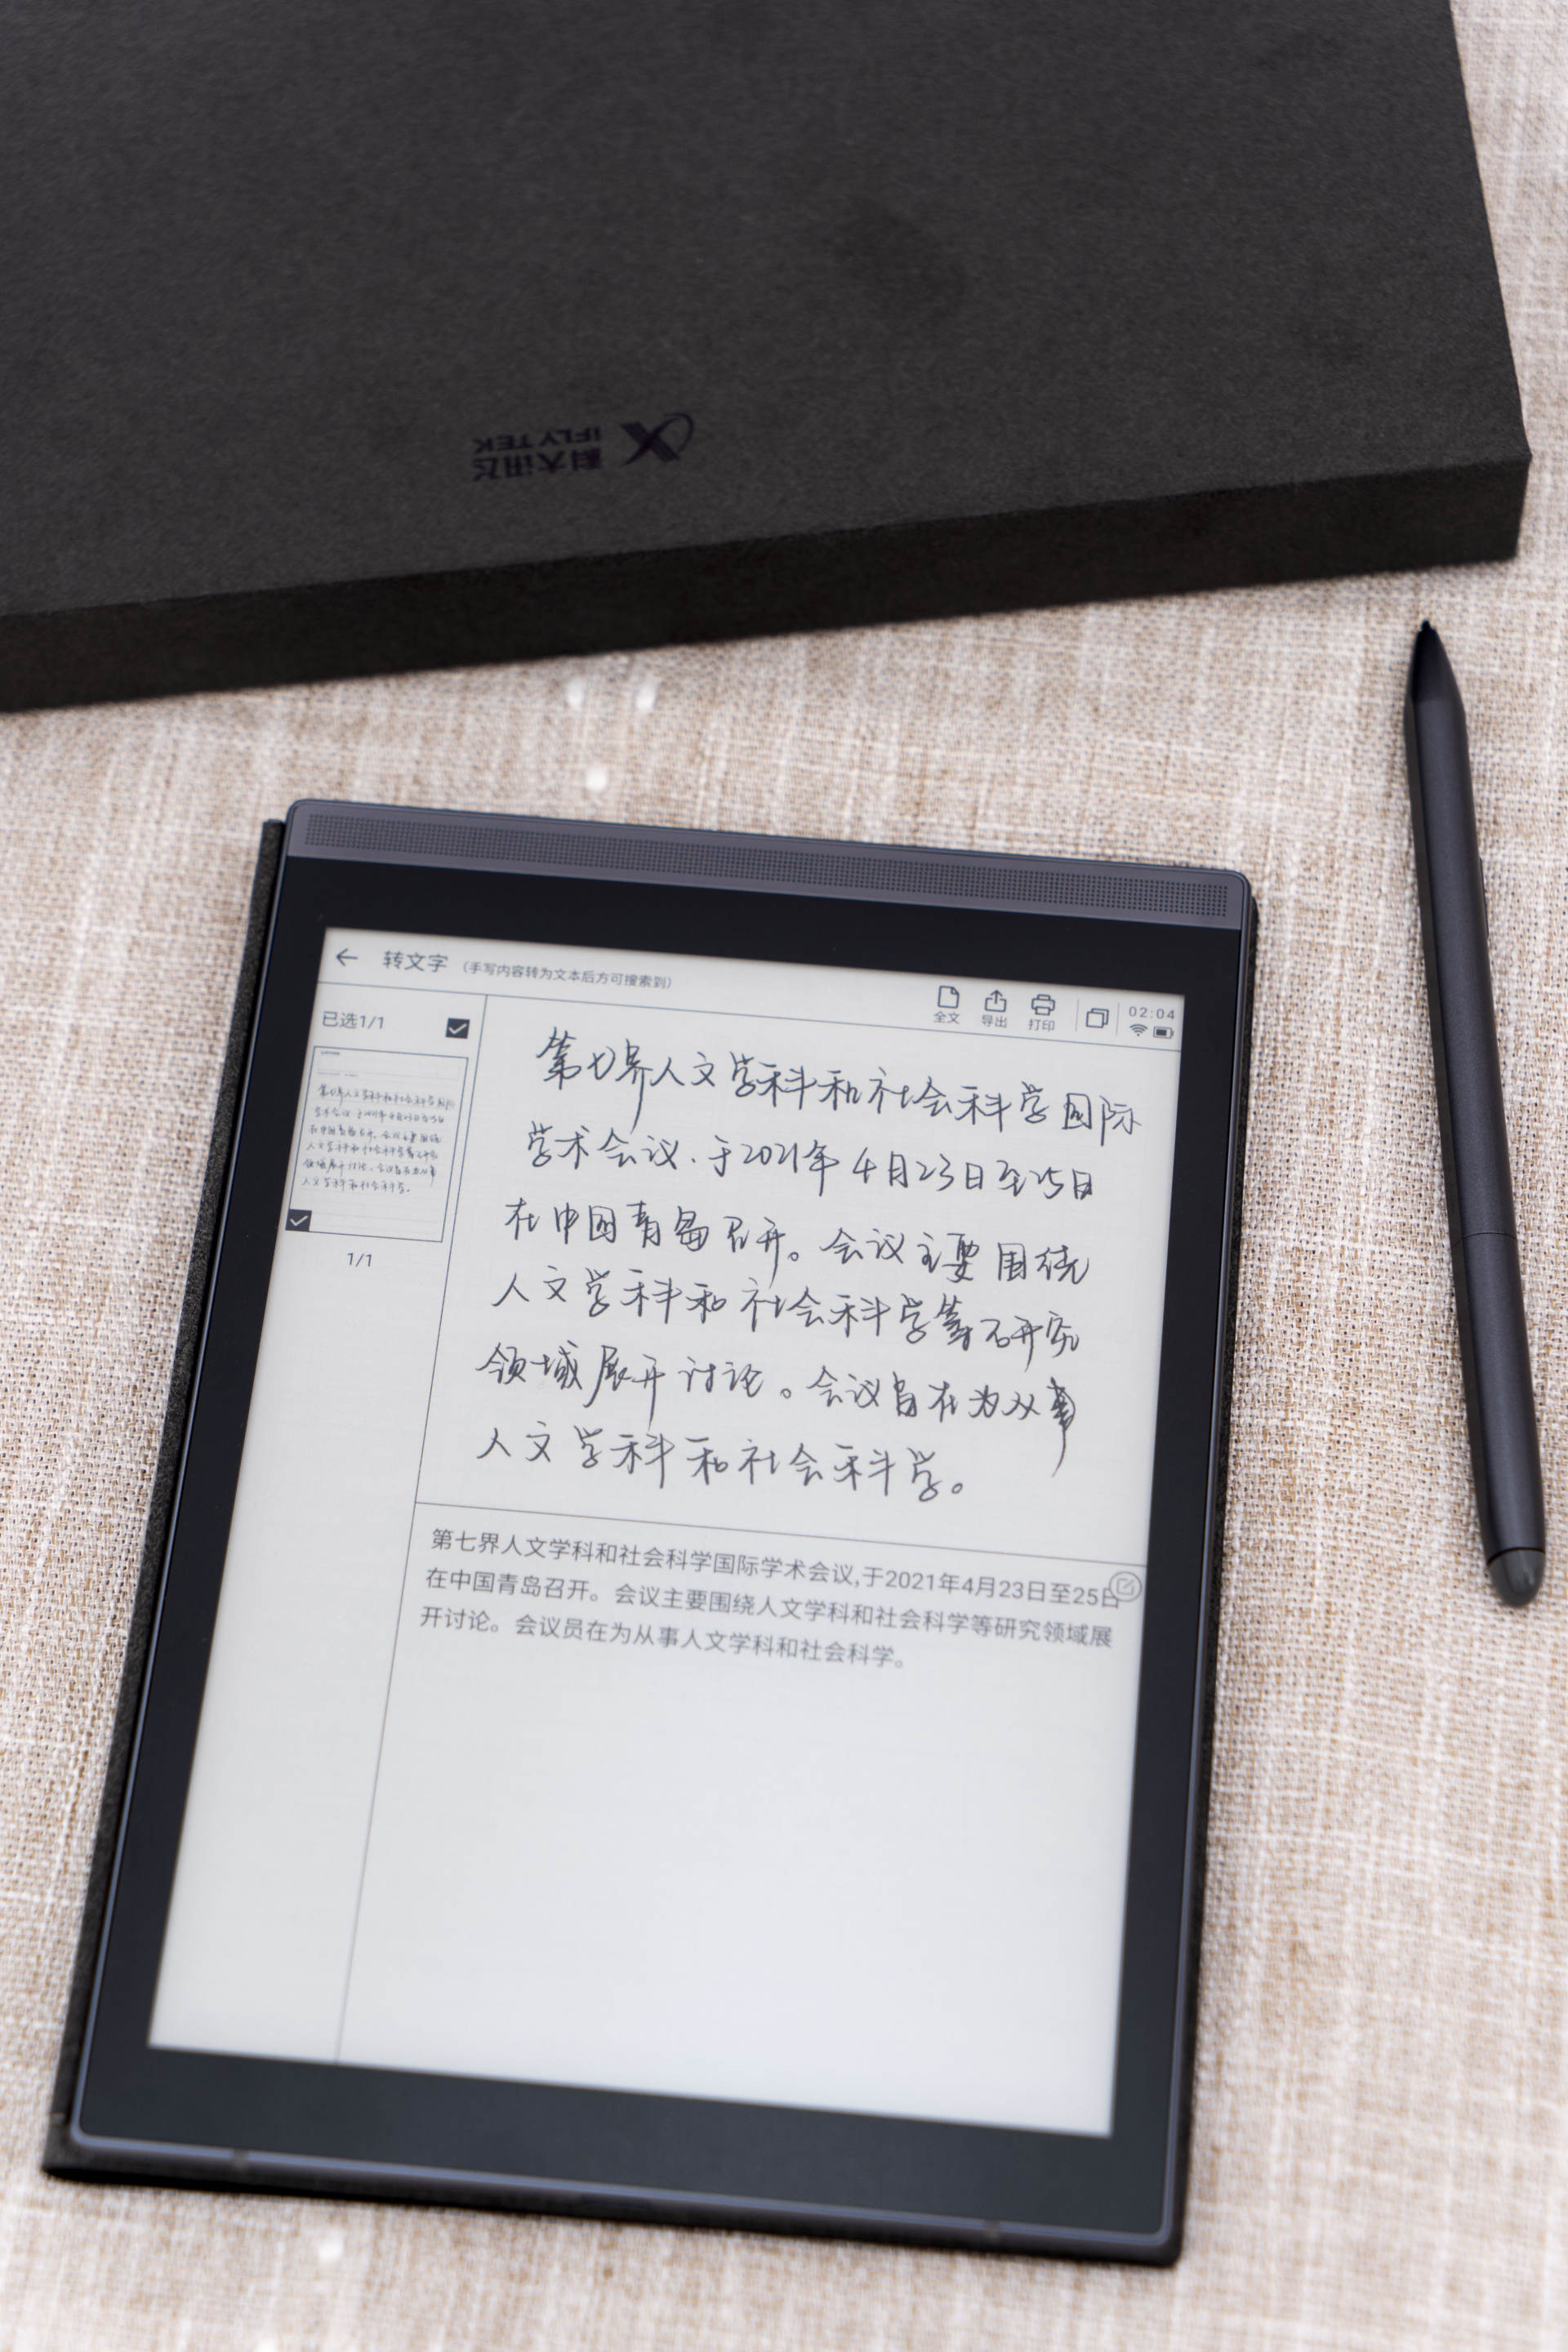 科大讯飞
IFLYTEK
转文字 (手写内容转为文本后方可搜索到)
全文 导出 打印 02:04
已选1/1
1/1
第七界人文学科和社会科学国际
学术会议.于2021年4月23日至25日
在中国青岛召开。会议主要围绕
人文学科和社会科学等研究
领域展开讨论。会议旨在为从事
人文学科和社会科学。
第七界人文学科和社会科学国际学术会议,于2021年4月23日至25日
在中国青岛召开。会议主要围绕人文学科和社会科学等研究领域展
开讨论。会议员在为从事人文学科和社会科学。